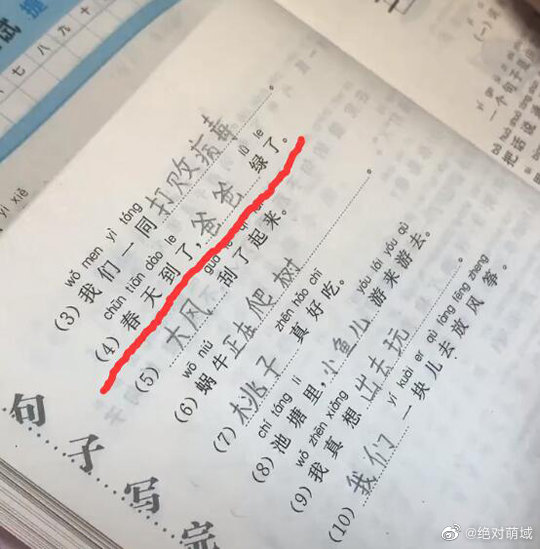 试 提
七 八 九 十
yì xiě
wǒ men yì tóng
(3)我们一同打败病毒。
chūn tiān dào le lǜ le
(4)春天到了,爸爸绿了。
guā le qǐ lái
(5)大风刮了起来。
wō niú
(6)蜗牛正在爬树。
zhēn hǎo chī
(7)桃子真好吃。
chí táng lǐ yóu lái yóu qù
(8)池塘里,小鱼儿游来游去。
wǒ zhēn xiǎng
(9)我真想出去玩。
yí kuài er qù fàng fēng zheng
(10)我们一块儿去放风筝。
句子写完
(一)
一个句子
把话说
@绝对萌域